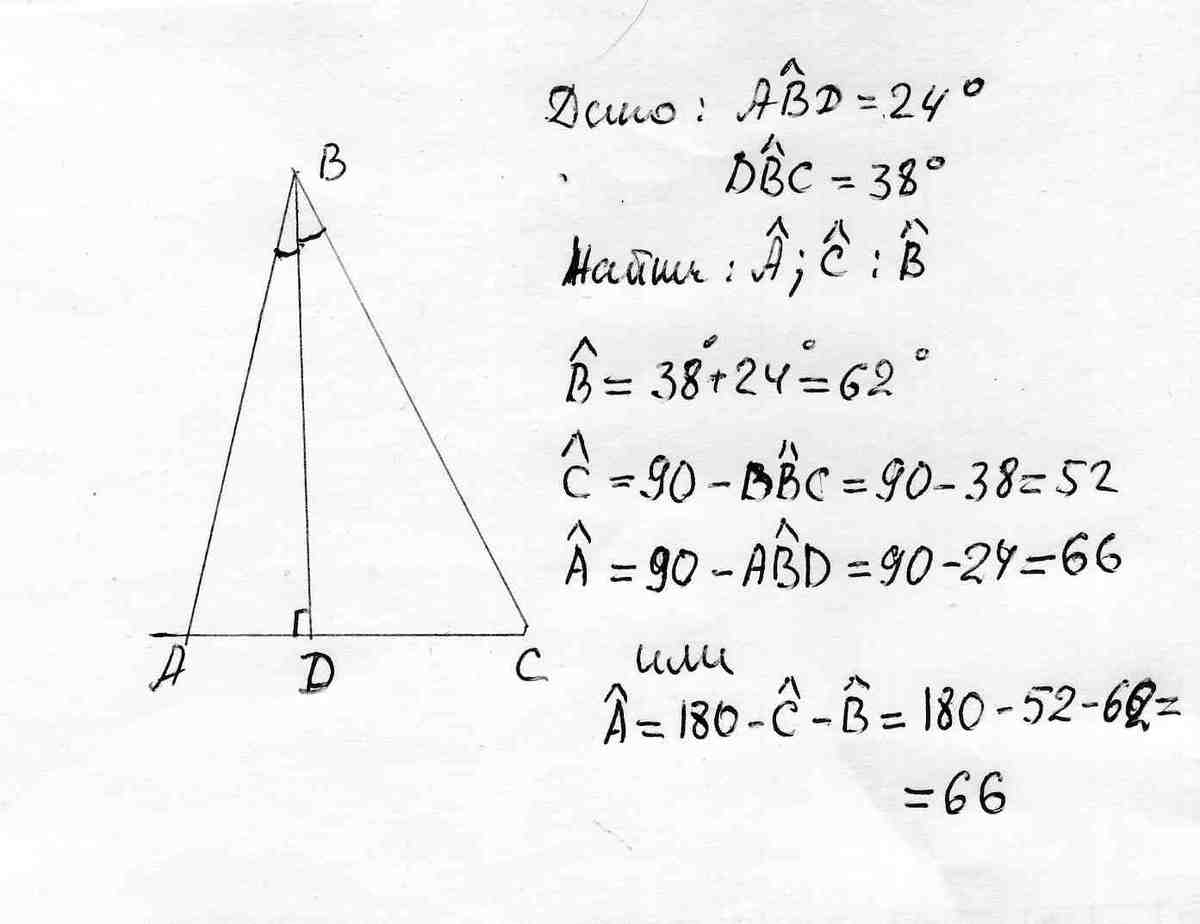 Дано: AB̂D = 24°
DB̂C = 38°
Найти: Â; Ĉ: B̂
B̂ = 38°+24°=62°
Ĉ = 90 - DB̂C = 90 - 38 = 52
Â = 90 - AB̂D = 90 - 24 = 66
или
Â = 180 - Ĉ - B̂ = 180 - 52 - 62 =
= 66
B
A
D
C